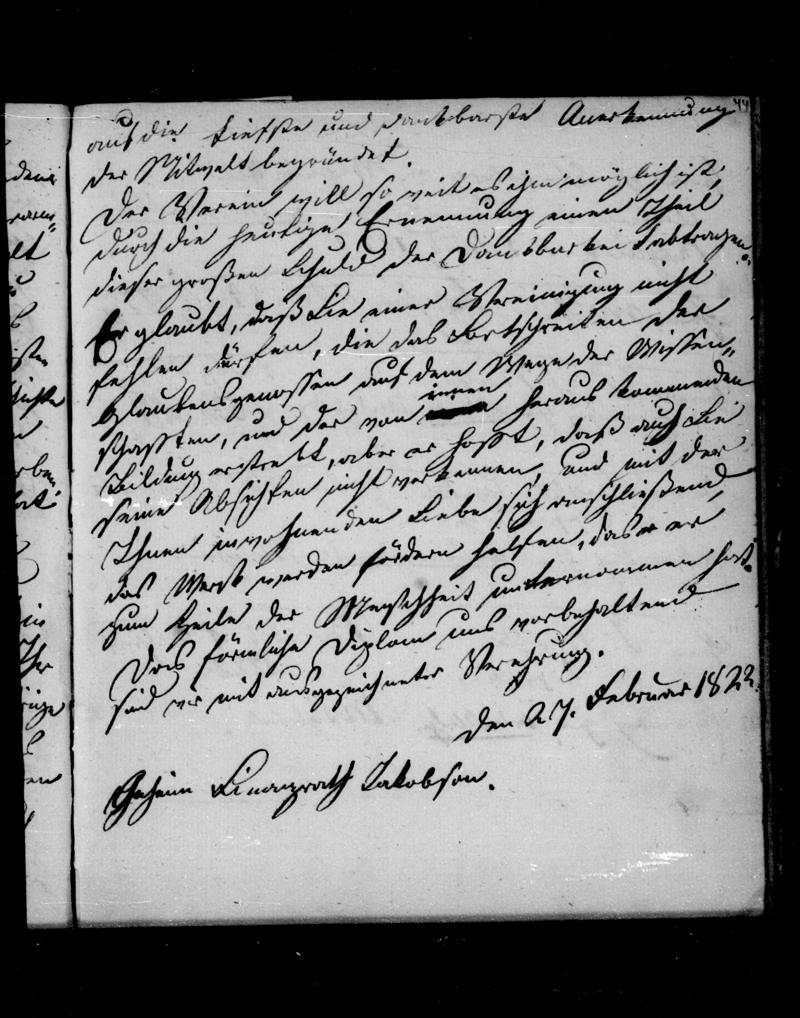 44
auf die tiefste und dankbarste Anerkennung
der Mitwelt begründet.
Der Verein will so weit es ihm möglich ist,
durch die heutige Ernennung einen Theil
dieser großen Schuld der Dankbarkeit abtragen.
Er glaubt, daß Sie einer Vereinigung nicht
fehlen dürfen, die das Fortschreiten der
Glaubensgenossen auf dem Wege der Wissen„
schafften, und der von innen heraus kommenden
Bildung erstrebt, aber er hofft, daß auch Sie
seine Absichten nicht verkennen, und mit der
Ihnen inwohnenden Liebe sich anschließend,
das Werk werden fördern helfen, das er
zum Heile der Menschheit unternommen hat.
Das förmliche Diplom uns vorbehaltend
sind wir mit ausgezeichneter Verehrung.
den 27. Februar 1822.
Geheim Finanzrath Jakobson.